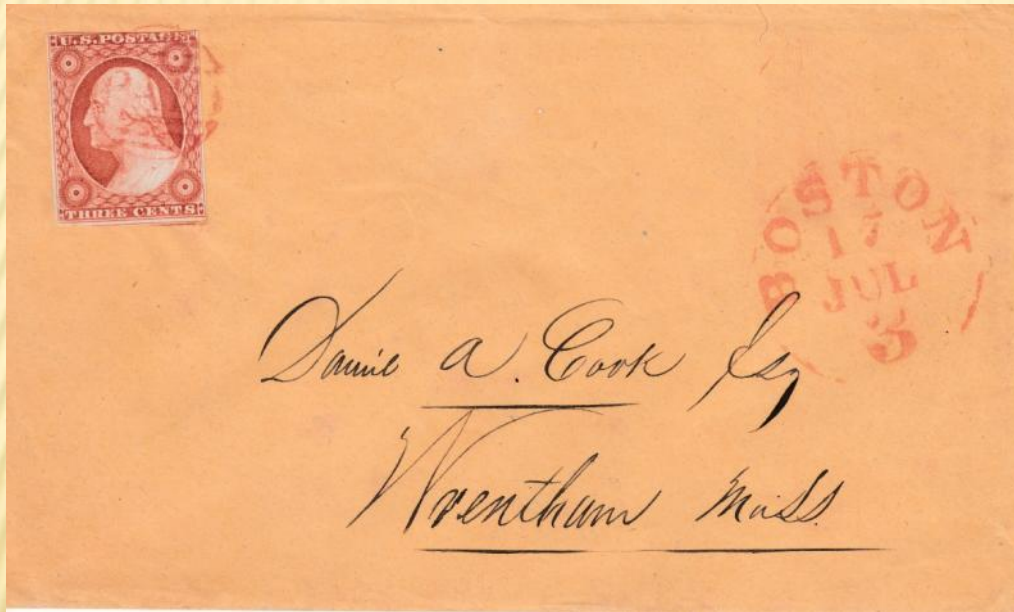 U.S. POSTAGE
THREE CENTS
BOSTON
17
JUL
3
A. Cook Esq
Wrentham Mass.